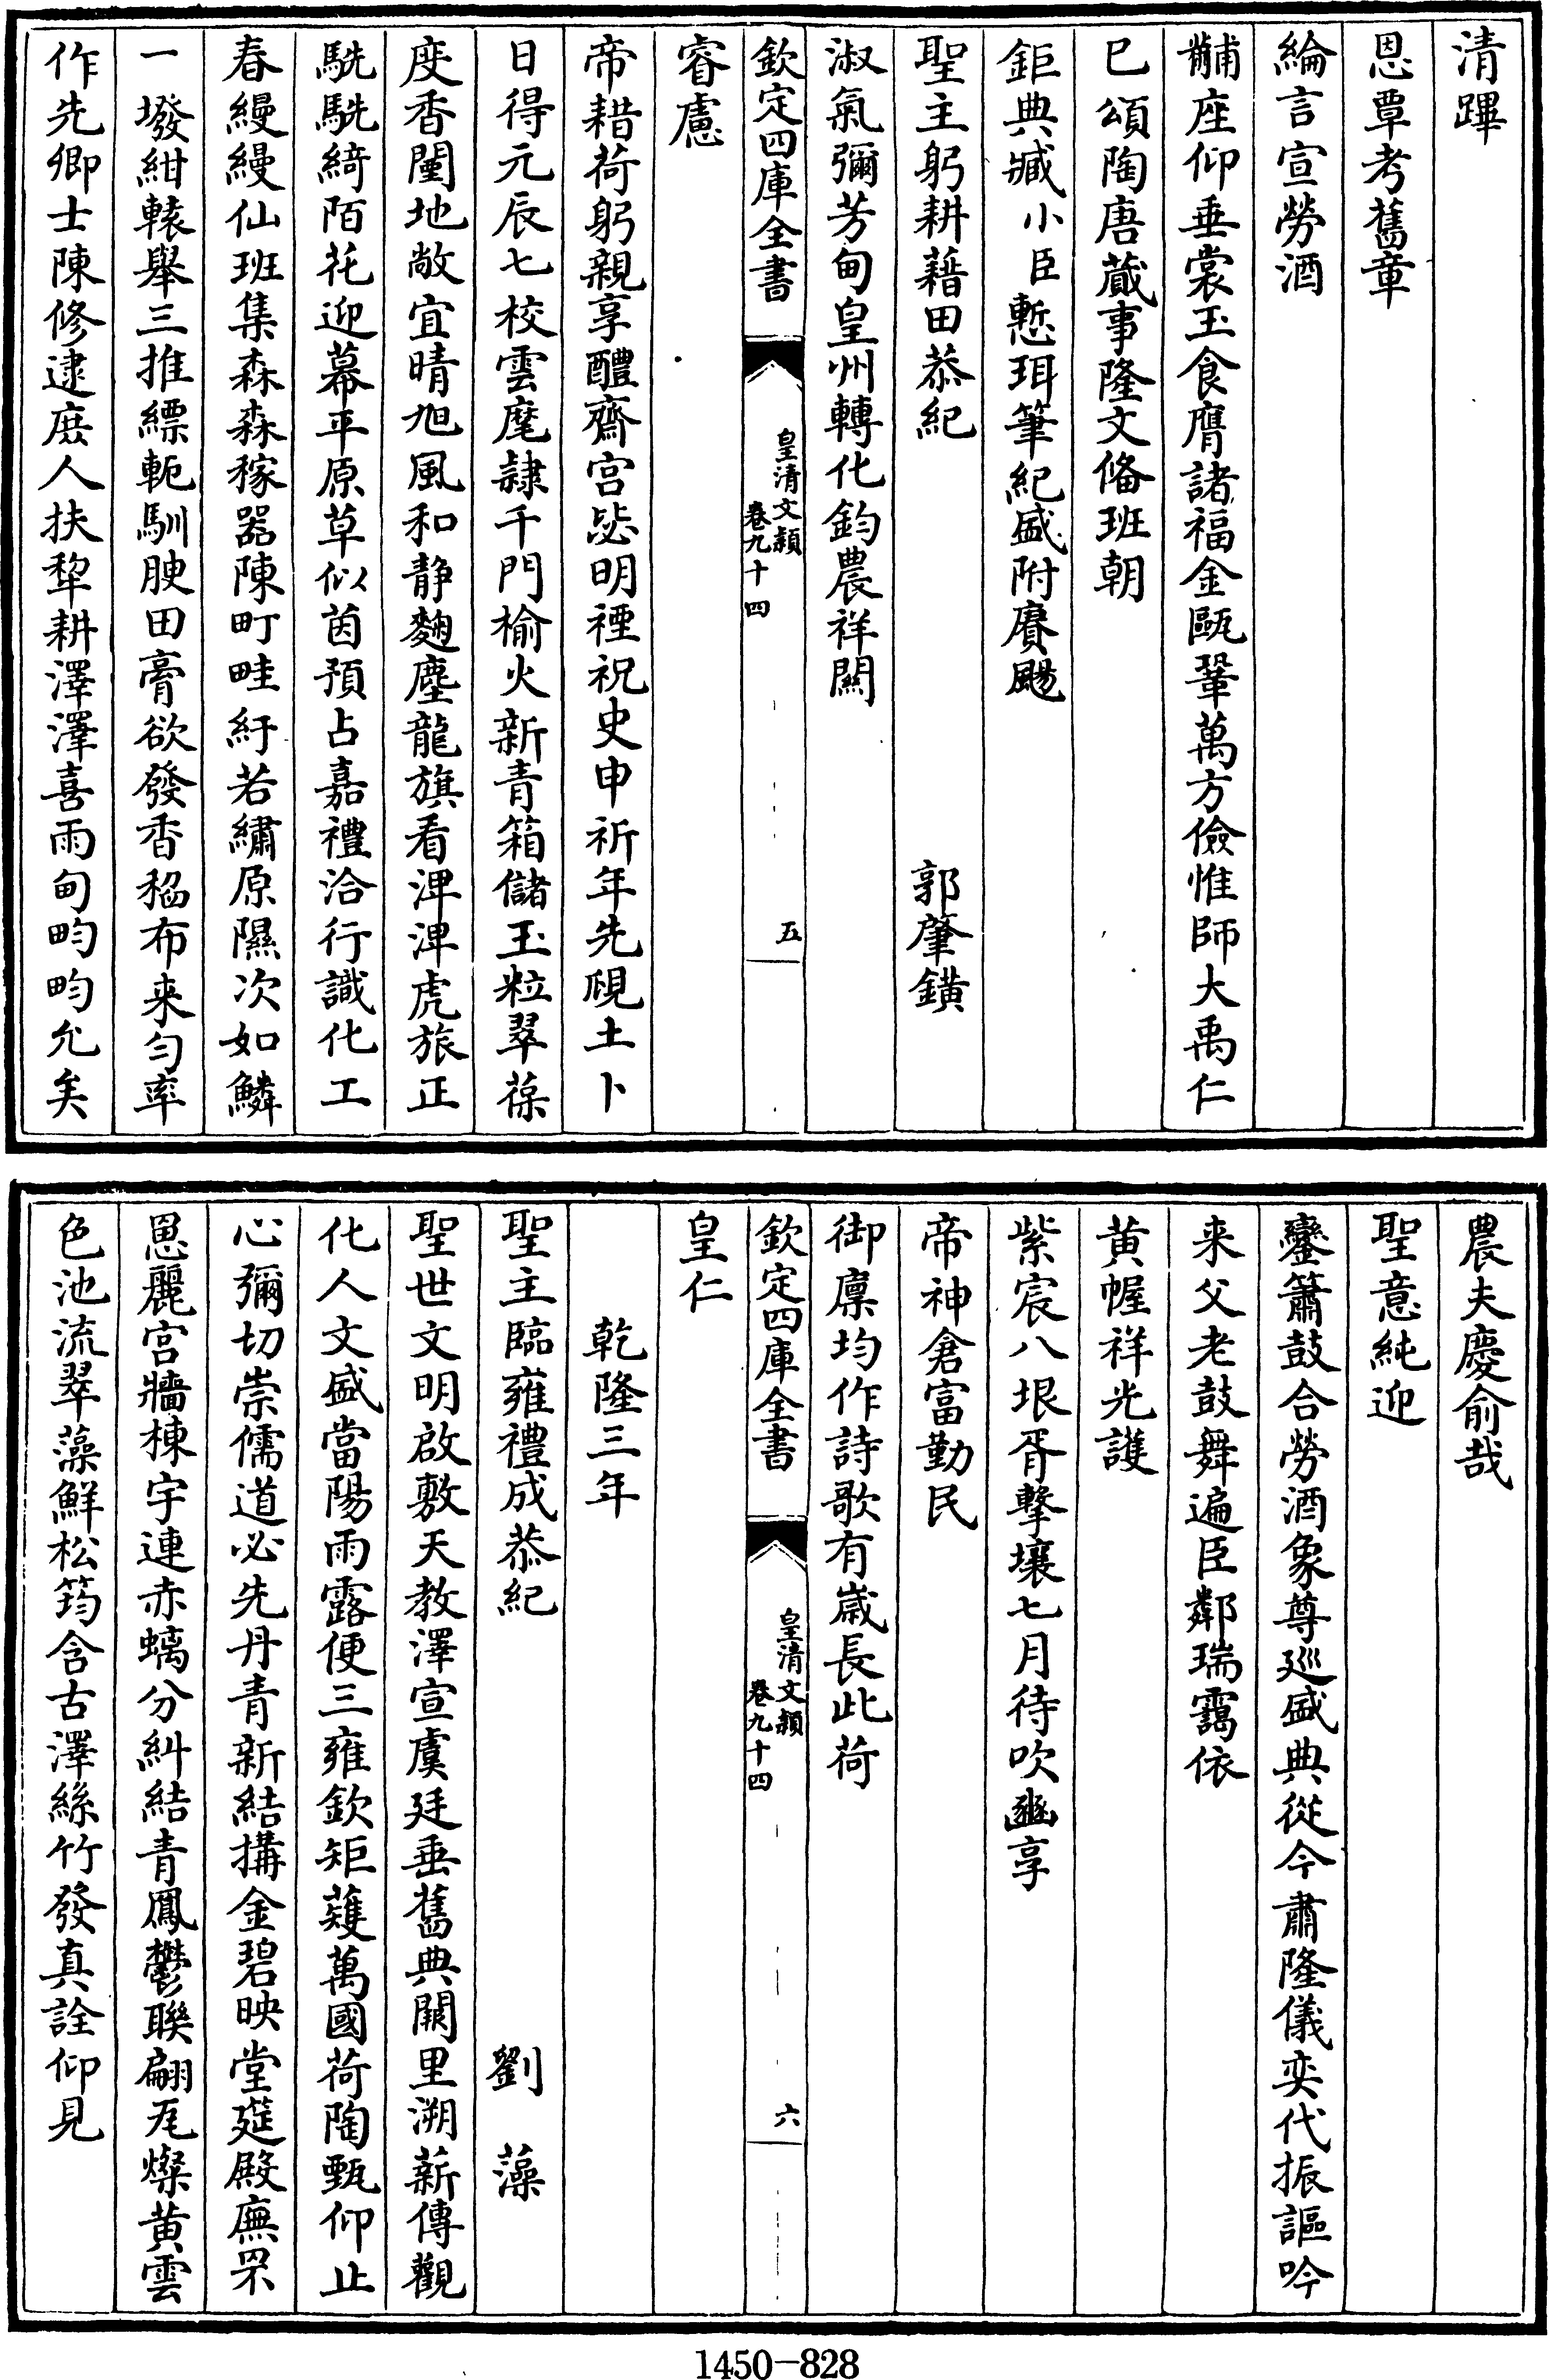 清蹕
恩覃考舊章
綸言宣勞酒
黼座仰垂裳玉食膺諸福金甌鞏萬方儉惟師大禹仁
已頌陶唐蕆事隆文俻班朝
鉅典臧小臣慙珥筆紀盛附賡颺
聖主躬耕藉田恭紀 郭肇鐄
淑氣彌芳甸皇州轉化鈞農祥闢
欽定四庫全書 皇清文頴 卷九十四 五
睿慮
帝耤荷躬親享醴齋宫毖明禋祝史申祈年先覛土卜
日得元辰七校雲麾隷千門榆火新青箱儲玉粒翠葆
度香闉地敞宜晴旭風和静麴塵龍旗看渒渒虎旅正
駪駪綺陌花迎幕平原草似茵預占嘉禮洽行識化工
春縵縵仙班集森森稼器陳町畦紆若繡原隰次如鱗
一墢紺轅舉三推縹軛馴腴田膏欲發香稏布来勻率
作先卿士陳修逮庶人扶犂耕澤澤喜雨甸畇畇允矣
農夫慶俞哉
聖意純迎
鑾簫鼓合勞酒象尊廵盛典從今肅隆儀奕代振謳吟
来父老鼓舞遍臣鄰瑞靄依
黄幄祥光護
紫宸八垠胥擊壤七月待吹豳享
帝神倉富勤民
御廪均作詩歌有嵗長此荷
欽定四庫全書 皇清文頴 卷九十四 六
皇仁
乾隆三年
聖主臨雍禮成恭紀 劉藻
聖世文明啟敷天教澤宣虞廷垂舊典闕里溯薪傳觀
化人文盛當陽雨露便三雍欽矩蒦萬國荷陶甄仰止
心彌切崇儒道必先丹青新結搆金碧映堂筵殿廡罘
罳麗宫牆棟宇連赤螭分糾結青鳳鬱聯翩瓦燦黄雲
色池流翠藻鮮松筠含古澤絲竹發真詮仰見
1450-828